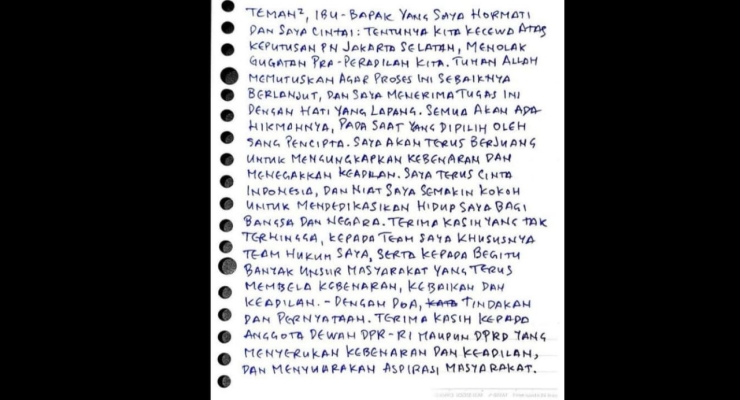 TEMAN², IBU-BAPAK YANG SAYA HORMATI
DAN SAYA CINTAI: TENTUNYA KITA KECEWA ATAS
KEPUTUSAN PN JAKARTA SELATAN, MENOLAK
GUGATAN PRA-PERADILAN KITA. TUHAN ALLAH
MEMUTUSKAN AGAR PROSES INI SEBAIKNYA
BERLANJUT, DAN SAYA MENERIMA TUGAS INI
DENGAN HATI YANG LAPANG. SEMUA AKAN ADA
HIKMAHNYA, PADA SAAT YANG DIPILIH OLEH
SANG PENCIPTA. SAYA AKAN TERUS BERJUANG
UNTUK MENGUNGKAPKAN KEBENARAN DAN
MENEGAKKAN KEADILAN. SAYA TERUS CINTA
INDONESIA, DAN NIAT SAYA SEMAKIN KOKOH
UNTUK MENDEDIKASIKAN HIDUP SAYA BAGI
BANGSA DAN NEGARA. TERIMA KASIH YANG TAK
TERHINGGA, KEPADA TEAM SAYA KHUSUSNYA
TEAM HUKUM SAYA, SERTA KEPADA BEGITU
BANYAK UNSUR MASYARAKAT YANG TERUS
MEMBELA KEBENARAN, KEBAIKAN DAN
KEADILAN. - DENGAN DOA, KATA TINDAKAN
DAN PERNYATAAN. TERIMA KASIH KEPADA
ANGGOTA DEWAN DPR-RI MAUPUN DPRD YANG
MENYERUKAN KEBENARAN DAN KEADILAN,
DAN MENYUARAKAN ASPIRASI MASYARAKAT.